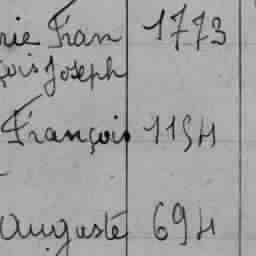 rie Fran 1773
çois Joseph
François 1154
Auguste 694